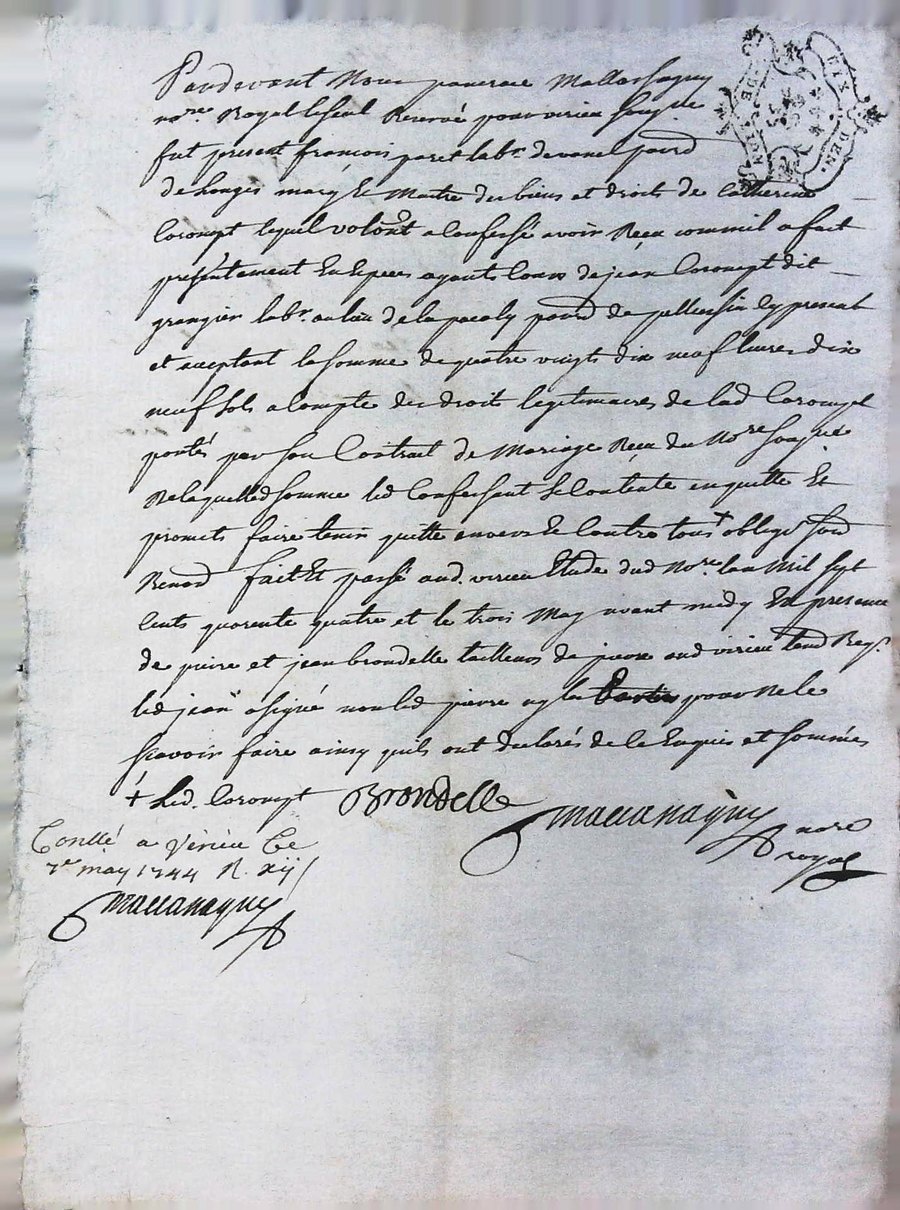 Pardevant Nous pancrace Mallassagny
no.re Royal le seul Reservé pour virieu soug.ne
fut present francois paret lab.r de vanel parr.d
de Longes mary Et Maitre des biens et droits de Catherine
Coronpt lequel volon.t a Confessé avoir Receu comm'il a fait
presentement En Especes ayants Cours de jean Coronpt dit
grangier lab.r au lieu de la pacaly parr.d de pellussin Cy present
et aceptant la somme de quatre vingts dix neuf livres dix
neuf sols a Compte des droits legitimaires de lad Coronpt
portés par son Contrat de Mariage Receu du No.re soug.né
De laquelle d somme led Confessant se Contente en quitte Et
promet faire tenir quitte envers Et Contre tous + oblige soud
Renod fait Et passé aud. virieu Etude dud No.re lan Mil sept
Cents quarente quatre et le trois May avant midy En presence
de piere et jean brondelle tailleurs de pierre aud virieu temd Req.s
led jean a signé non led pierre ny les pour ne le
scavoir faire ainsy quils ont declarés de Ce Enquis et sommés
+ Led. Coronpt Brondelle
no.re
royal
Conllé a Virieu Ce
7e may 1744 R. xij s